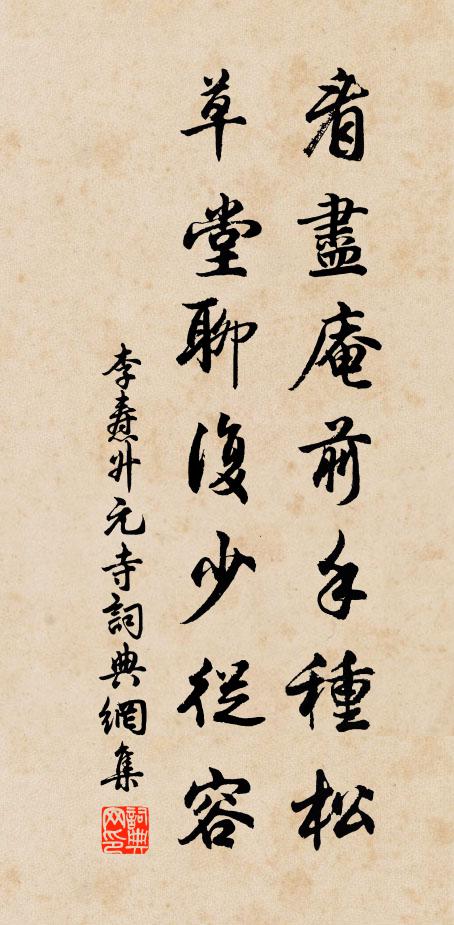 看盡庵前手種松
草堂聊復少從容
李燾升元寺詞典網集
詞典網印